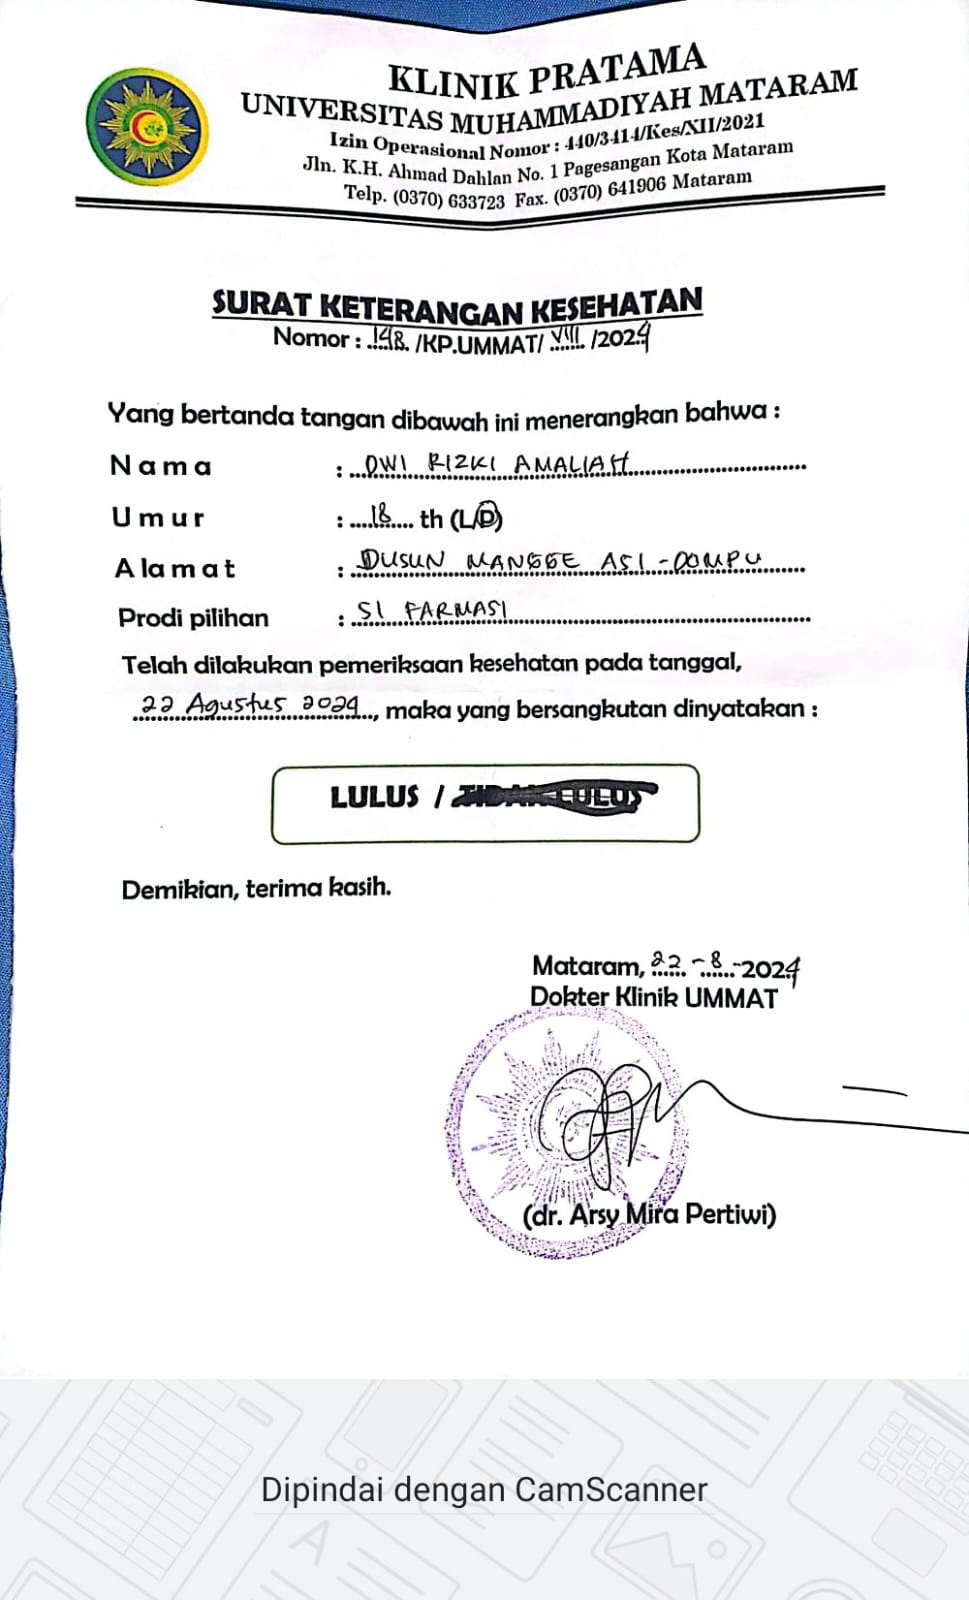 KLINIK PRATAMA
UNIVERSITAS MUHAMMADIYAH MATARAM
Izin Operasional Nomor : 440/3414/Kes/XII/2021
Jln. K.H. Ahmad Dahlan No. 1 Pagesangan Kota Mataram
Telp. (0370) 633723 Fax. (0370) 641906 Mataram
SURAT KETERANGAN KESEHATAN
Nomor : 148 /KP.UMMAT/ VIII /2024
Yang bertanda tangan dibawah ini menerangkan bahwa :
Nama : DWI RIZKI AMALIAH
Umur : 18 th (L/P)
Alamat : DUSUN MANGGE ASI - DOMPU
Prodi pilihan : S1 FARMASI
Telah dilakukan pemeriksaan kesehatan pada tanggal,
22 Agustus 2024, maka yang bersangkutan dinyatakan :
LULUS / TIDAK LULUS
Demikian, terima kasih.
Mataram, 22 - 8 -2024
Dokter Klinik UMMAT
(dr. Arsy Mira Pertiwi)
Dipindai dengan CamScanner